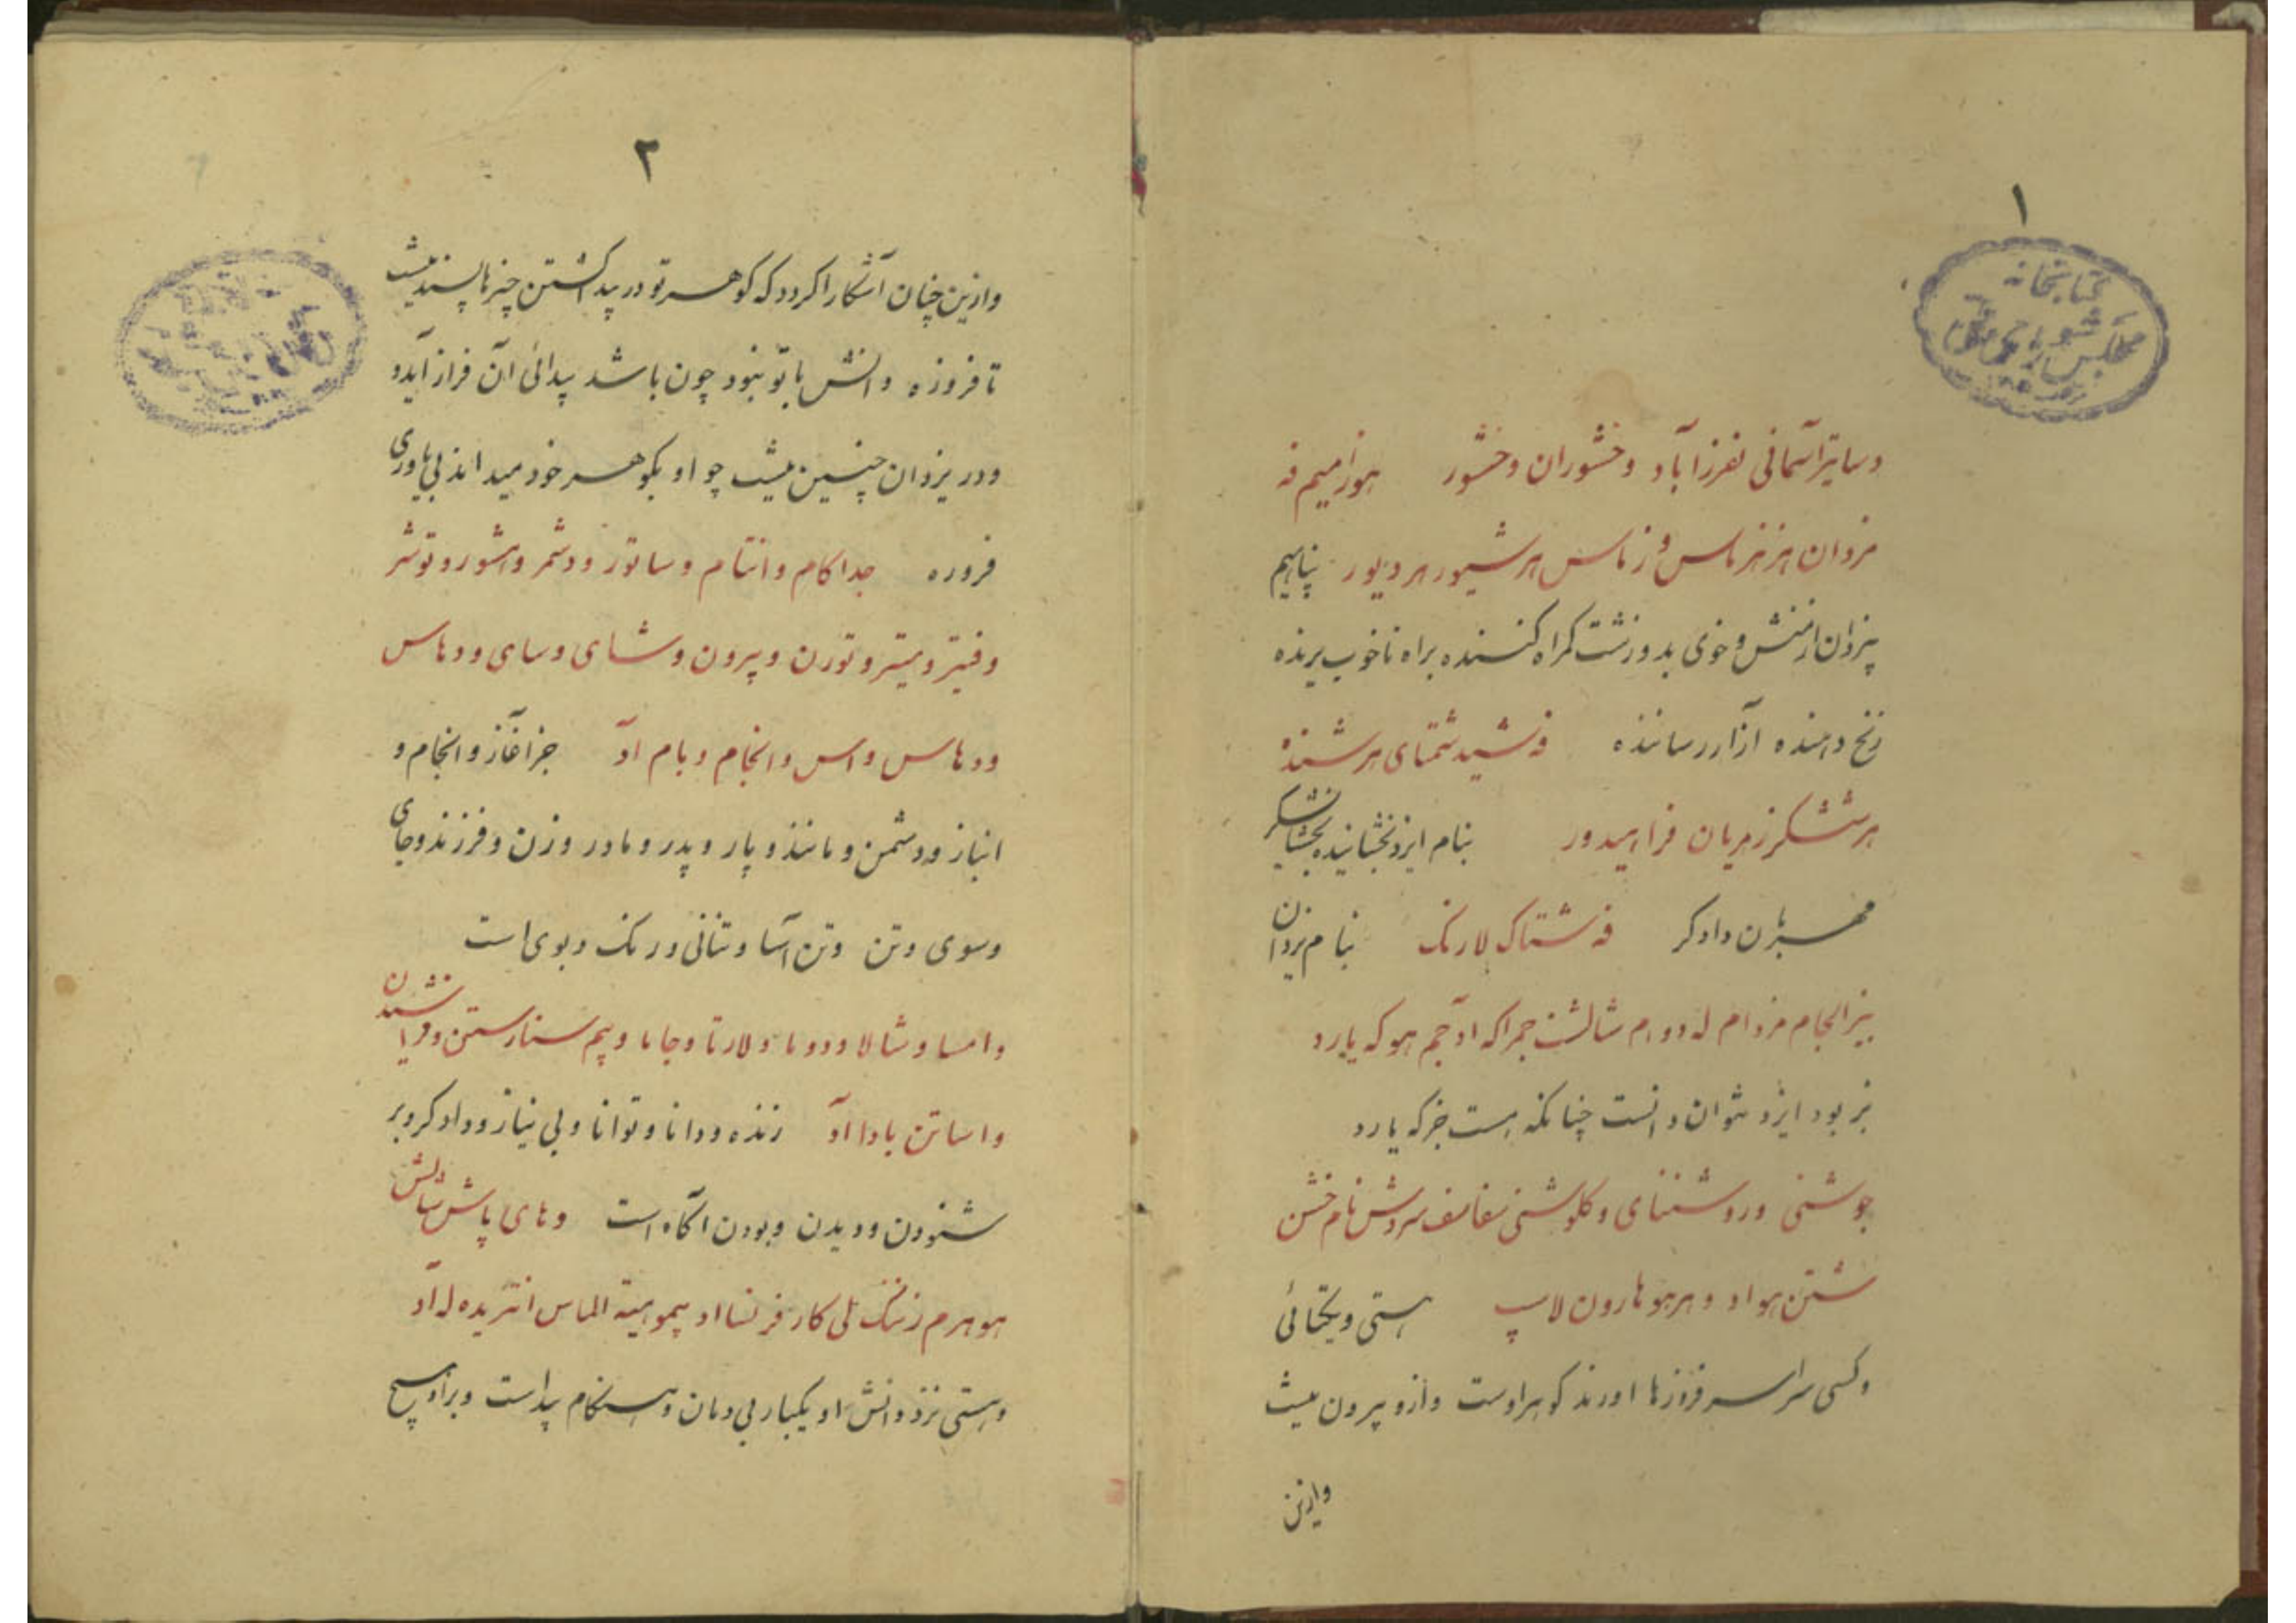 ۱
کتابخانه
مجلس شورای ملی
دساتیر آسمانی بفرزآباد وخشوران وخشور هوزامیم فه
مزدان هزهزماس وزماس هرشیور هردیور پناهیم
بیزدان از منش و خوی بد و زشت گمراه کننده براه ناخوب برنده
رنج دهنده آزار رساننده فه شید شمتای هرشنده
هرششگر زمرپان فراهیدور بنام ایزد بخشاینده بخشایشگر
مهربان دادگر فه شتاک لارنک بنام یزدان
بیز انجام مزدام له دوام شالشت جمراکه اد آجم هوکه یارد
بز بود ایزد نتوان دانست چنانکه هست جز که یارد
جوشنی وروشنای وکلوشنی سروش نام خشن
شتن هواد و هرهو هارون لاپ هستی ویکتائی
وکسی سراسر فروزها اورند گوهر اوست وازو بیرون نیست
وازین
۲
وازین چنان آشکارا کردد که گوهر تو در پیداکشتن چیزها پسند نیست
تا فروزه دانش با تو نبود چون باشد پیدائی آن فراز آید و
و در یزدان چنین نیست چو او بگوهر خود میداند بی یاوری
فروزه جداکام وانتام وساتور ودشمر واشور وتوشر
وفیتر ومیتر وتورن وپرون وشای وسای وودهاس
وودهاس واس وانجام وبام اد جز آغاز وانجام و
انباز ودشمن ومانند ویار وپدر ومادر وزن وفرزند وجای
وسوی وتن وتن آسا وتنانی ورنک وبوی است
وامسا وشالا وودوما ولارتا وجاما وپم سنارستن
واساتن باداا د زنده ودانا وتوانا وبی نیاز ودادگر وبر
شنودن ودیدن وبودن آگاه است وهای پاش شالش
هوهرم زنگ لی کار فرنسا اد پموهیته الماس انتریده له آد
وهستی نزد دانش او یکبار بی دمان وهنگام پیداست وبر او هیچ